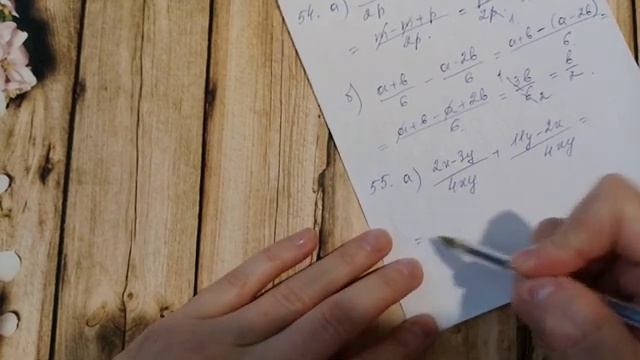 54. а) / 2p =
= (m - m + p) / 2p = / 2p.
б) (a+b)/6 - (a-2b)/6 = (a+b-(a-2b))/6 =
= (a+b-a+2b)/6 = 3b/6 = b/2.
55. а) (2x-3y)/4xy + (11y-2x)/4xy =
=